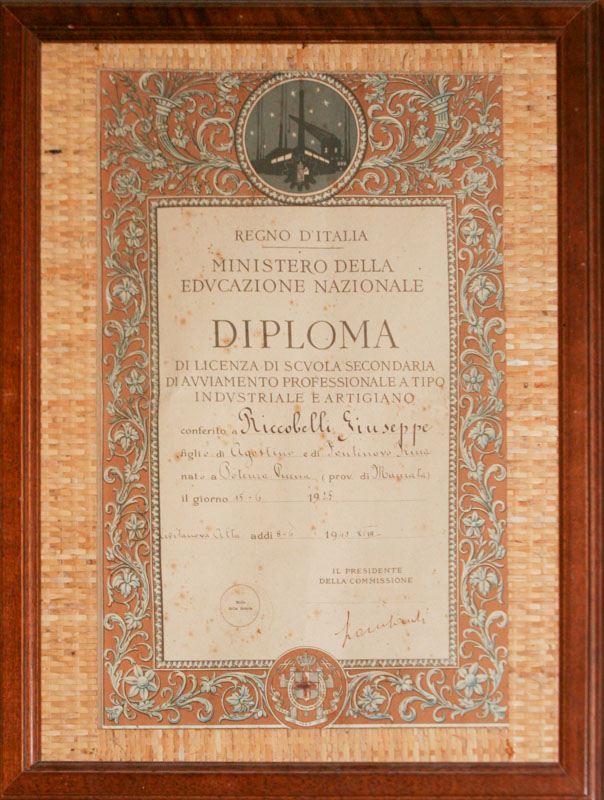 REGNO D'ITALIA
MINISTERO DELLA
EDVCAZIONE NAZIONALE
DIPLOMA
DI LICENZA DI SCVOLA SECONDARIA
DI AVVIAMENTO PROFESSIONALE A TIPO
INDVSTRIALE E ARTIGIANO
conferito a Riccobelli Giuseppe
figlio di Agostino e di Fontinovo
nato a Potenza Picena (prov. di Macerata)
il giorno 15-6 1925
Civitanova Alta addì 8-6 1940 XVIII
IL PRESIDENTE
DELLA COMMISSIONE
Bollo
della Scuola